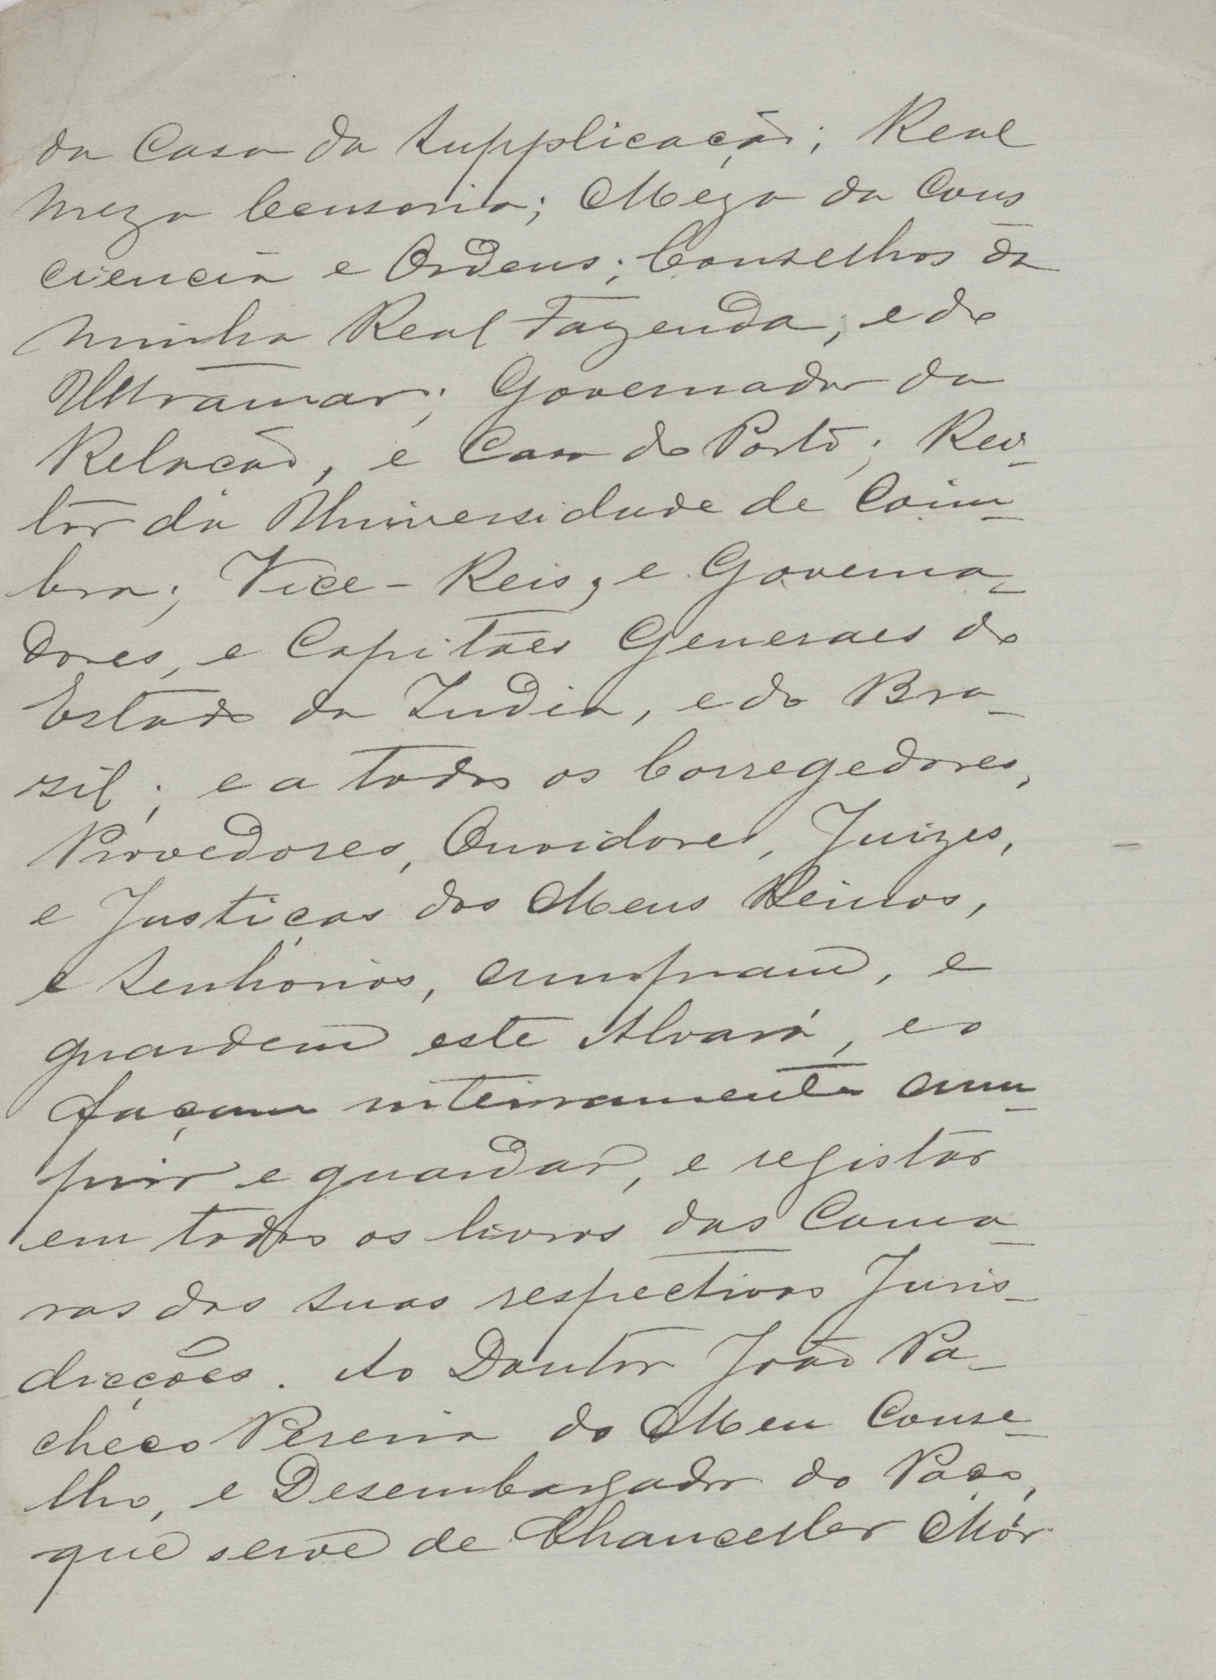 da Casa da Supplicação; Real
Meza Censoria; Meza da Cons
ciencia e Ordens; Conselhos da
minha Real Fazenda, e do
Ultramar; Governador da
Relação, e Casa do Porto; Rei-
tor da Universidade de Coim-
bra; Vice-Reis, e Governa-
dores, e Capitães Generaes do
Estado da India, e do Bra-
sil; e a todos os Corregedores,
Provedores, Ouvidores, Juizes,
e Justiças dos Meus Reinos,
e Senhorios, cumpram, e
guardem este Alvará, e o
façam inteiramente cum-
prir e guardar, e registar
em todos os livros das Cama-
ras das suas respectivas Juris-
dicções. Ao Doutor João Pa-
checo Pereira do Meu Conse-
lho, e Desembargador do Paço,
que serve de Chanceller Mór